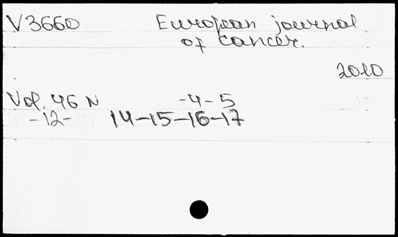 V3660 European journal
of cancer.
2010
Vol. 46 N -4-5
-12- 14-15-16-17